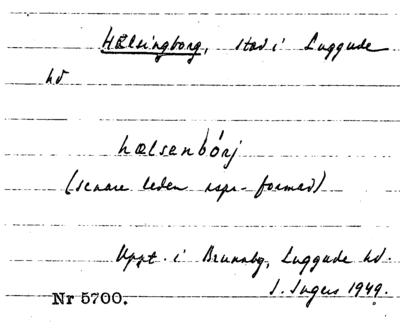 Hälsingborg, stad i Luggude
hd
hælsenbórj
(senare leden rspr-formad)
Uppt. i Brunnby, Luggude hd.
I. Ingers 1949.
Nr 5700.